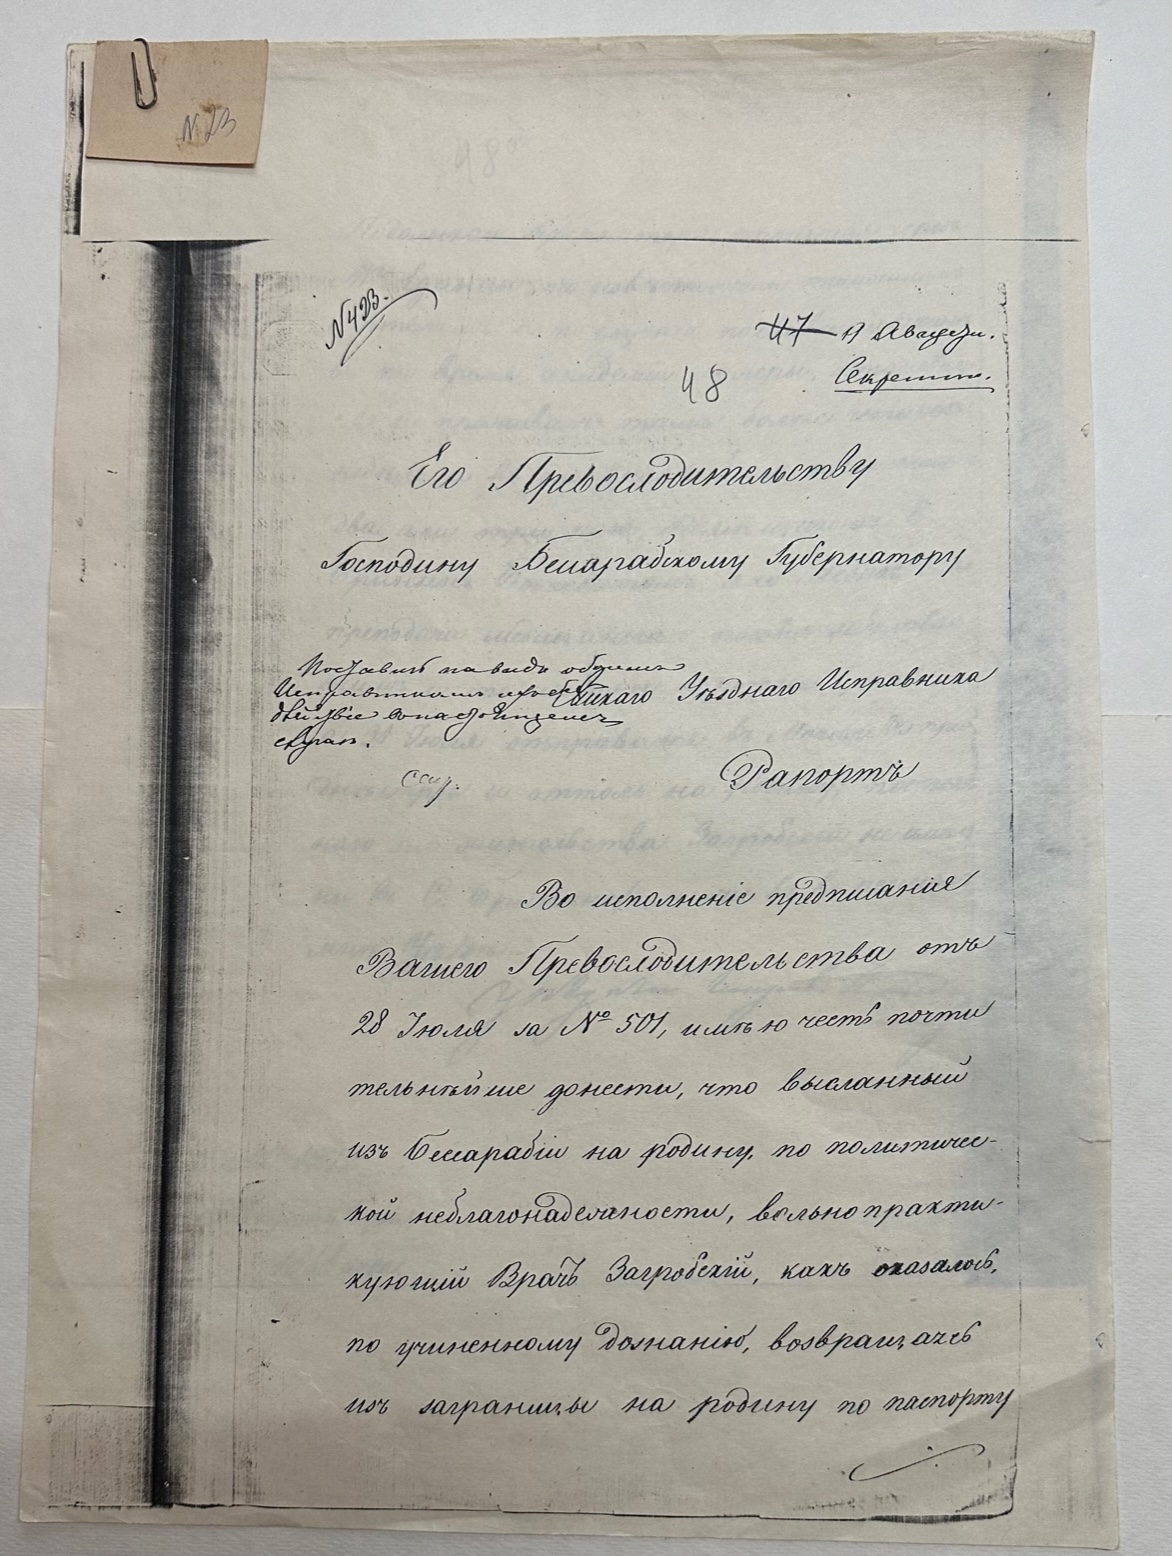 N 23
№423.
47 19 Августа.
48 Секретно.
Его Превосходительству
Господину Бессарабскому Губернатору
Поставить на видъ
Исправникам
действие
случаѣ.
скаго Уѣзднаго Исправника
Рапортъ
Во исполненіе предписанія
Вашего Превосходительства отъ
28 Іюля за № 501, имѣю честь почти
тельнѣйше донести, что высланный
изъ Бессарабіи на родину, по политичес-
кой неблагонадежности, вольнопракти-
кующій Врачъ Загробскій, какъ оказалось,
по учиненному дознанію, возвращаясь
изъ заграницы на родину по паспорту